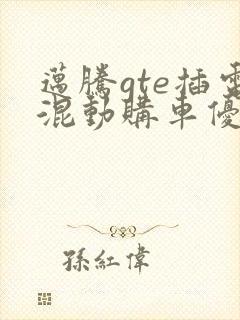 邁騰gte插電
混動購車優
孫紅偉